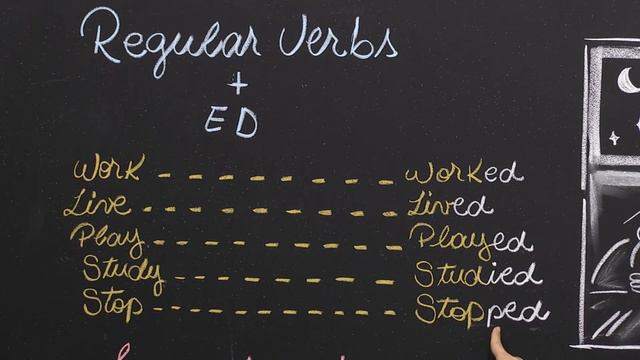 Regular Verbs
+
ED
Work - - - - - - - - Worked
Live - - - - - - - - Lived
Play - - - - - - - - Played
Study - - - - - - - - Studied
Stop - - - - - - - - Stopped